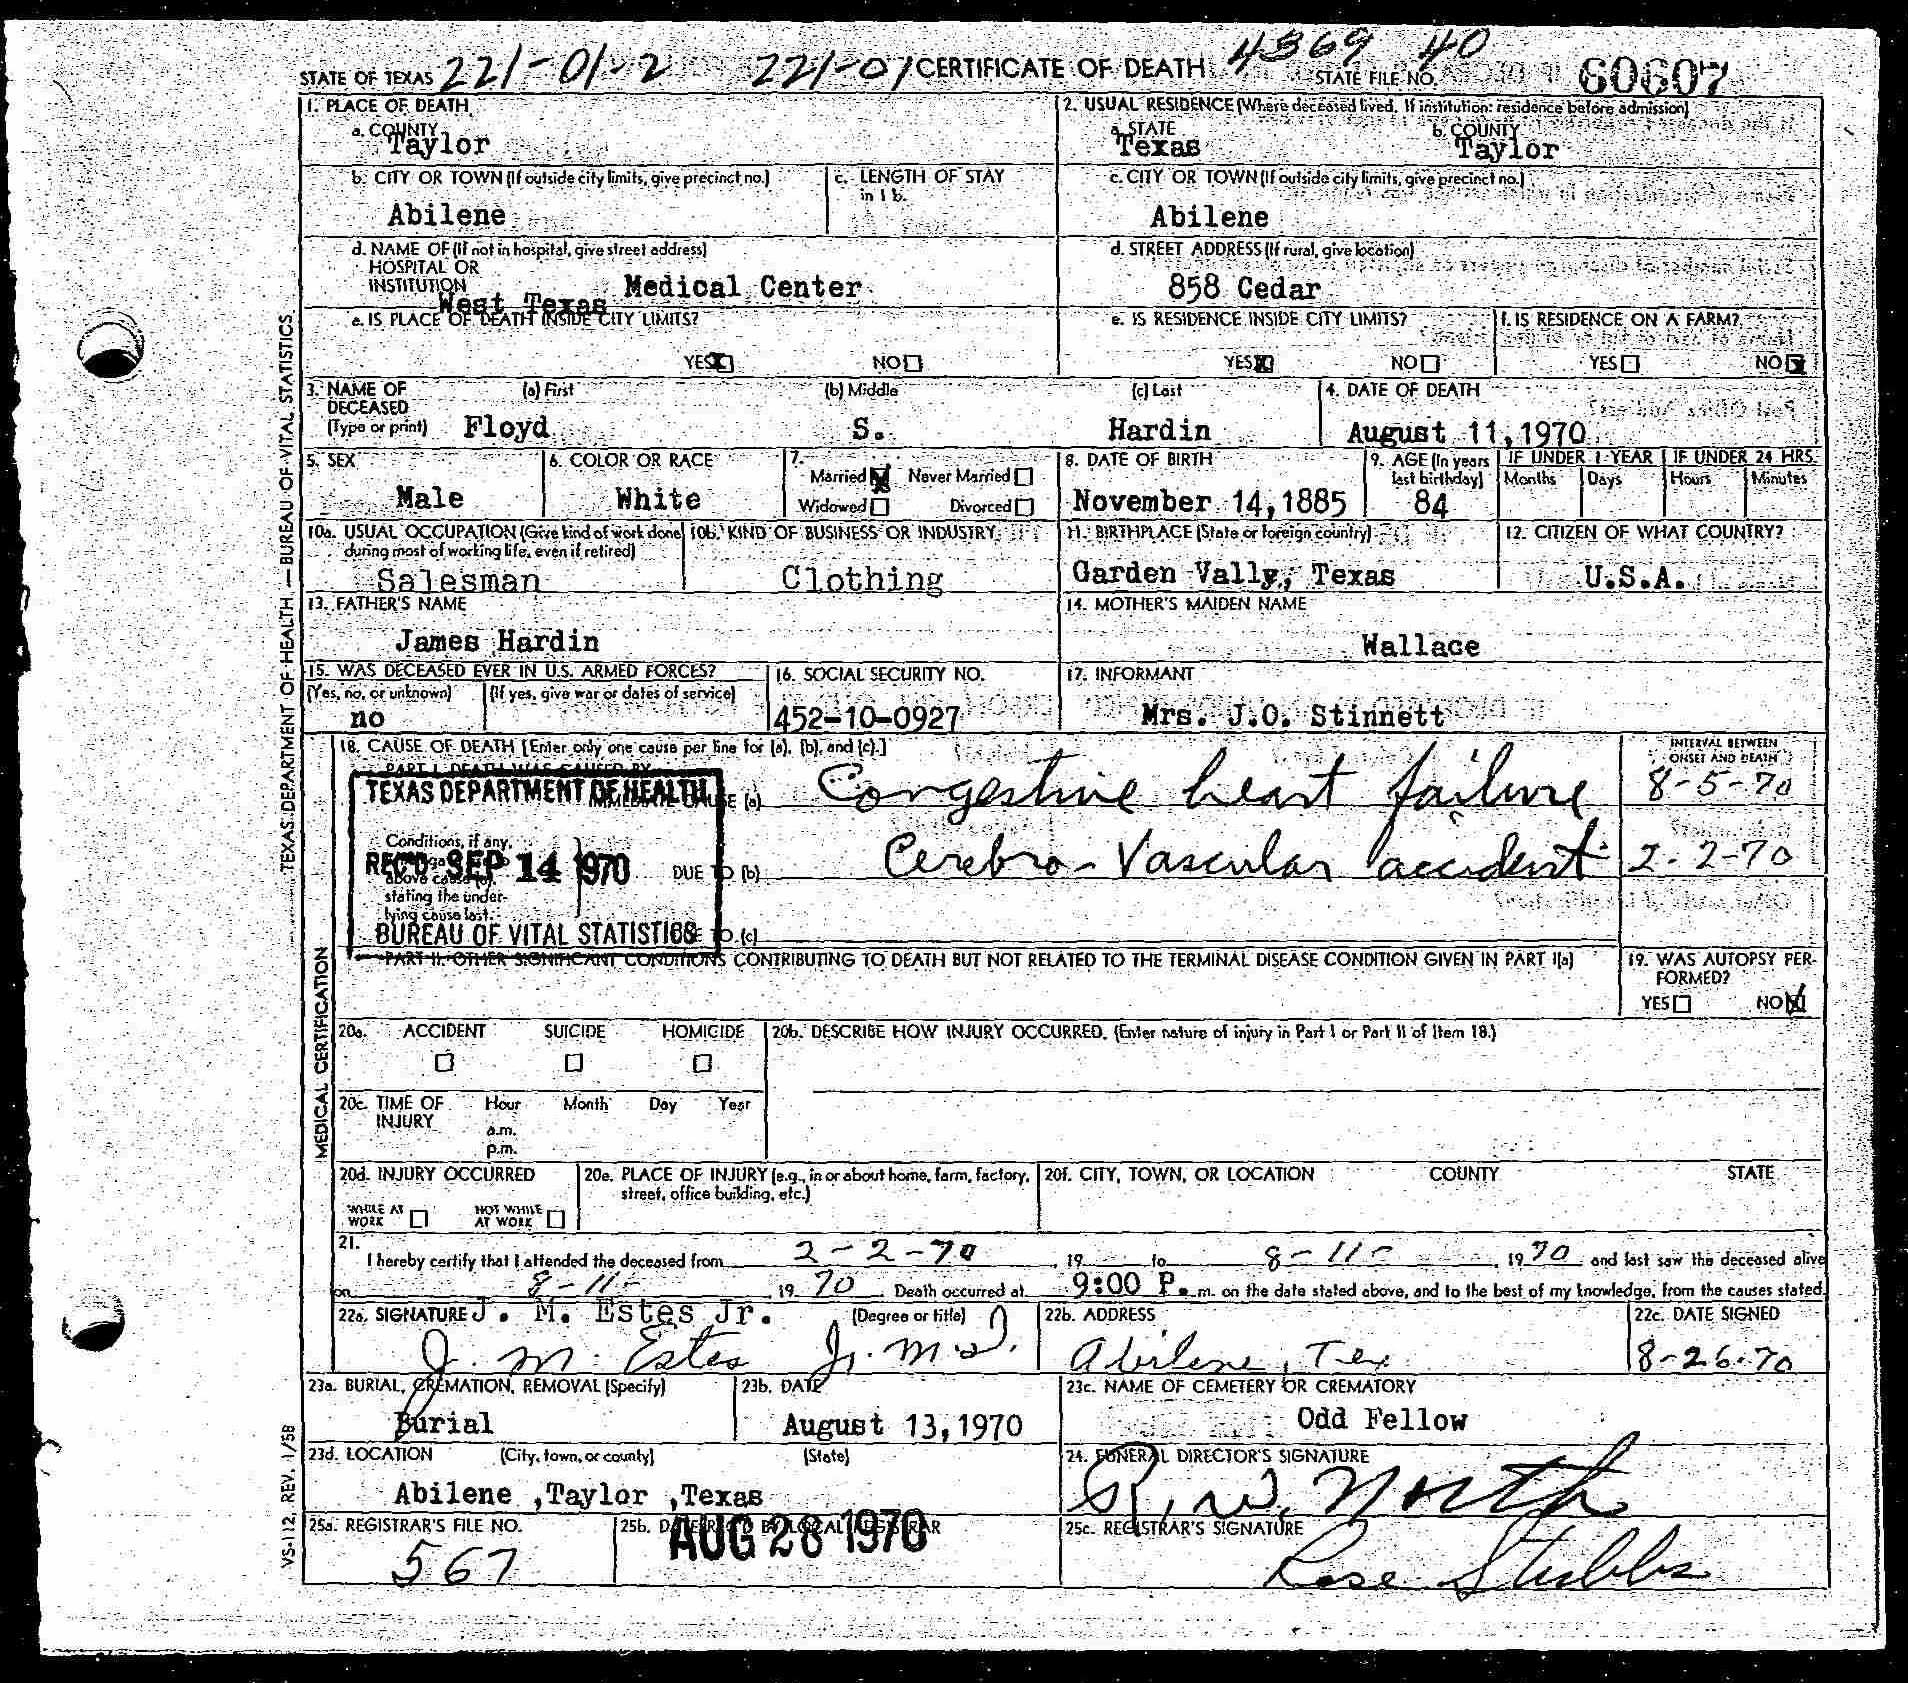 STATE OF TEXAS 221-01-2 221-01 CERTIFICATE OF DEATH 4369 40 STATE FILE NO. 60607
1. PLACE OF DEATH
a. COUNTY
Taylor
2. USUAL RESIDENCE (Where deceased lived. If institution: residence before admission)
a. STATE b. COUNTY
Texas Taylor
b. CITY OR TOWN (If outside city limits, give precinct no.)
Abilene
c. LENGTH OF STAY
in 1 b.
c. CITY OR TOWN (If outside city limits, give precinct no.)
Abilene
d. NAME OF (If not in hospital, give street address)
HOSPITAL OR
INSTITUTION
West Texas Medical Center
d. STREET ADDRESS (If rural, give location)
858 Cedar
e. IS PLACE OF DEATH INSIDE CITY LIMITS?
YES NO
e. IS RESIDENCE INSIDE CITY LIMITS?
YES NO
f. IS RESIDENCE ON A FARM?
YES NO
3. NAME OF (a) First (b) Middle (c) Last
DECEASED
(Type or print) Floyd S. Hardin
4. DATE OF DEATH
August 11,1970
5. SEX
Male
6. COLOR OR RACE
White
7.
Married Never Married
Widowed Divorced
8. DATE OF BIRTH
November 14,1885
9. AGE (In years
last birthday)
84
IF UNDER 1 YEAR
Months Days
IF UNDER 24 HRS.
Hours Minutes
10a. USUAL OCCUPATION (Give kind of work done
during most of working life, even if retired)
Salesman
10b. KIND OF BUSINESS OR INDUSTRY
Clothing
11. BIRTHPLACE (State or foreign country)
Garden Vally, Texas
12. CITIZEN OF WHAT COUNTRY?
U.S.A.
13. FATHER'S NAME
James Hardin
14. MOTHER'S MAIDEN NAME
Wallace
15. WAS DECEASED EVER IN U.S. ARMED FORCES?
(Yes, no, or unknown) (If yes, give war or dates of service)
no
16. SOCIAL SECURITY NO.
452-10-0927
17. INFORMANT
Mrs. J.O. Stinnett
18. CAUSE OF DEATH [Enter only one cause per line for (a), (b), and (c).]
PART I. DEATH WAS CAUSED BY
INTERVAL BETWEEN
ONSET AND DEATH
TEXAS DEPARTMENT OF HEALTH
(a) Congestive heart failure 8-5-70
Conditions, if any,
REC'D SEP 14 1970
above cause (a),
stating the under-
lying cause last.
DUE TO (b) Cerebro-Vascular accident 2-2-70
BUREAU OF VITAL STATISTICS
TO (c)
PART II. OTHER SIGNIFICANT CONDITIONS CONTRIBUTING TO DEATH BUT NOT RELATED TO THE TERMINAL DISEASE CONDITION GIVEN IN PART I(a)
19. WAS AUTOPSY PER-
FORMED?
YES NO
20a. ACCIDENT SUICIDE HOMICIDE
20b. DESCRIBE HOW INJURY OCCURRED. (Enter nature of injury in Part I or Part II of Item 18.)
20c. TIME OF Hour Month Day Year
INJURY
a.m.
p.m.
20d. INJURY OCCURRED
WHILE AT
WORK
NOT WHILE
AT WORK
20e. PLACE OF INJURY (e.g., in or about home, farm, factory,
street, office building, etc.)
20f. CITY, TOWN, OR LOCATION COUNTY STATE
21.
I hereby certify that I attended the deceased from 2-2-70, 19 to 8-11-, 1970 and last saw the deceased alive
on 8-11-, 19 70. Death occurred at 9:00 P.m. on the date stated above, and to the best of my knowledge, from the causes stated.
22a. SIGNATURE J. M. Estes Jr. (Degree or title)
J. M. Estes Jr. M.D.
22b. ADDRESS
Abilene, Tex
22c. DATE SIGNED
8-26-70
23a. BURIAL, CREMATION, REMOVAL (Specify)
Burial
23b. DATE
August 13,1970
23c. NAME OF CEMETERY OR CREMATORY
Odd Fellow
23d. LOCATION (City, town, or county) (State)
Abilene ,Taylor ,Texas
24. FUNERAL DIRECTOR'S SIGNATURE
R. W. North
25a. REGISTRAR'S FILE NO.
567
25b. DATE REC'D BY LOCAL REGISTRAR
AUG 28 1970
25c. REGISTRAR'S SIGNATURE
Rose Stubbs
TEXAS DEPARTMENT OF HEALTH — BUREAU OF VITAL STATISTICS
MEDICAL CERTIFICATION
VS-112, REV. 1/58